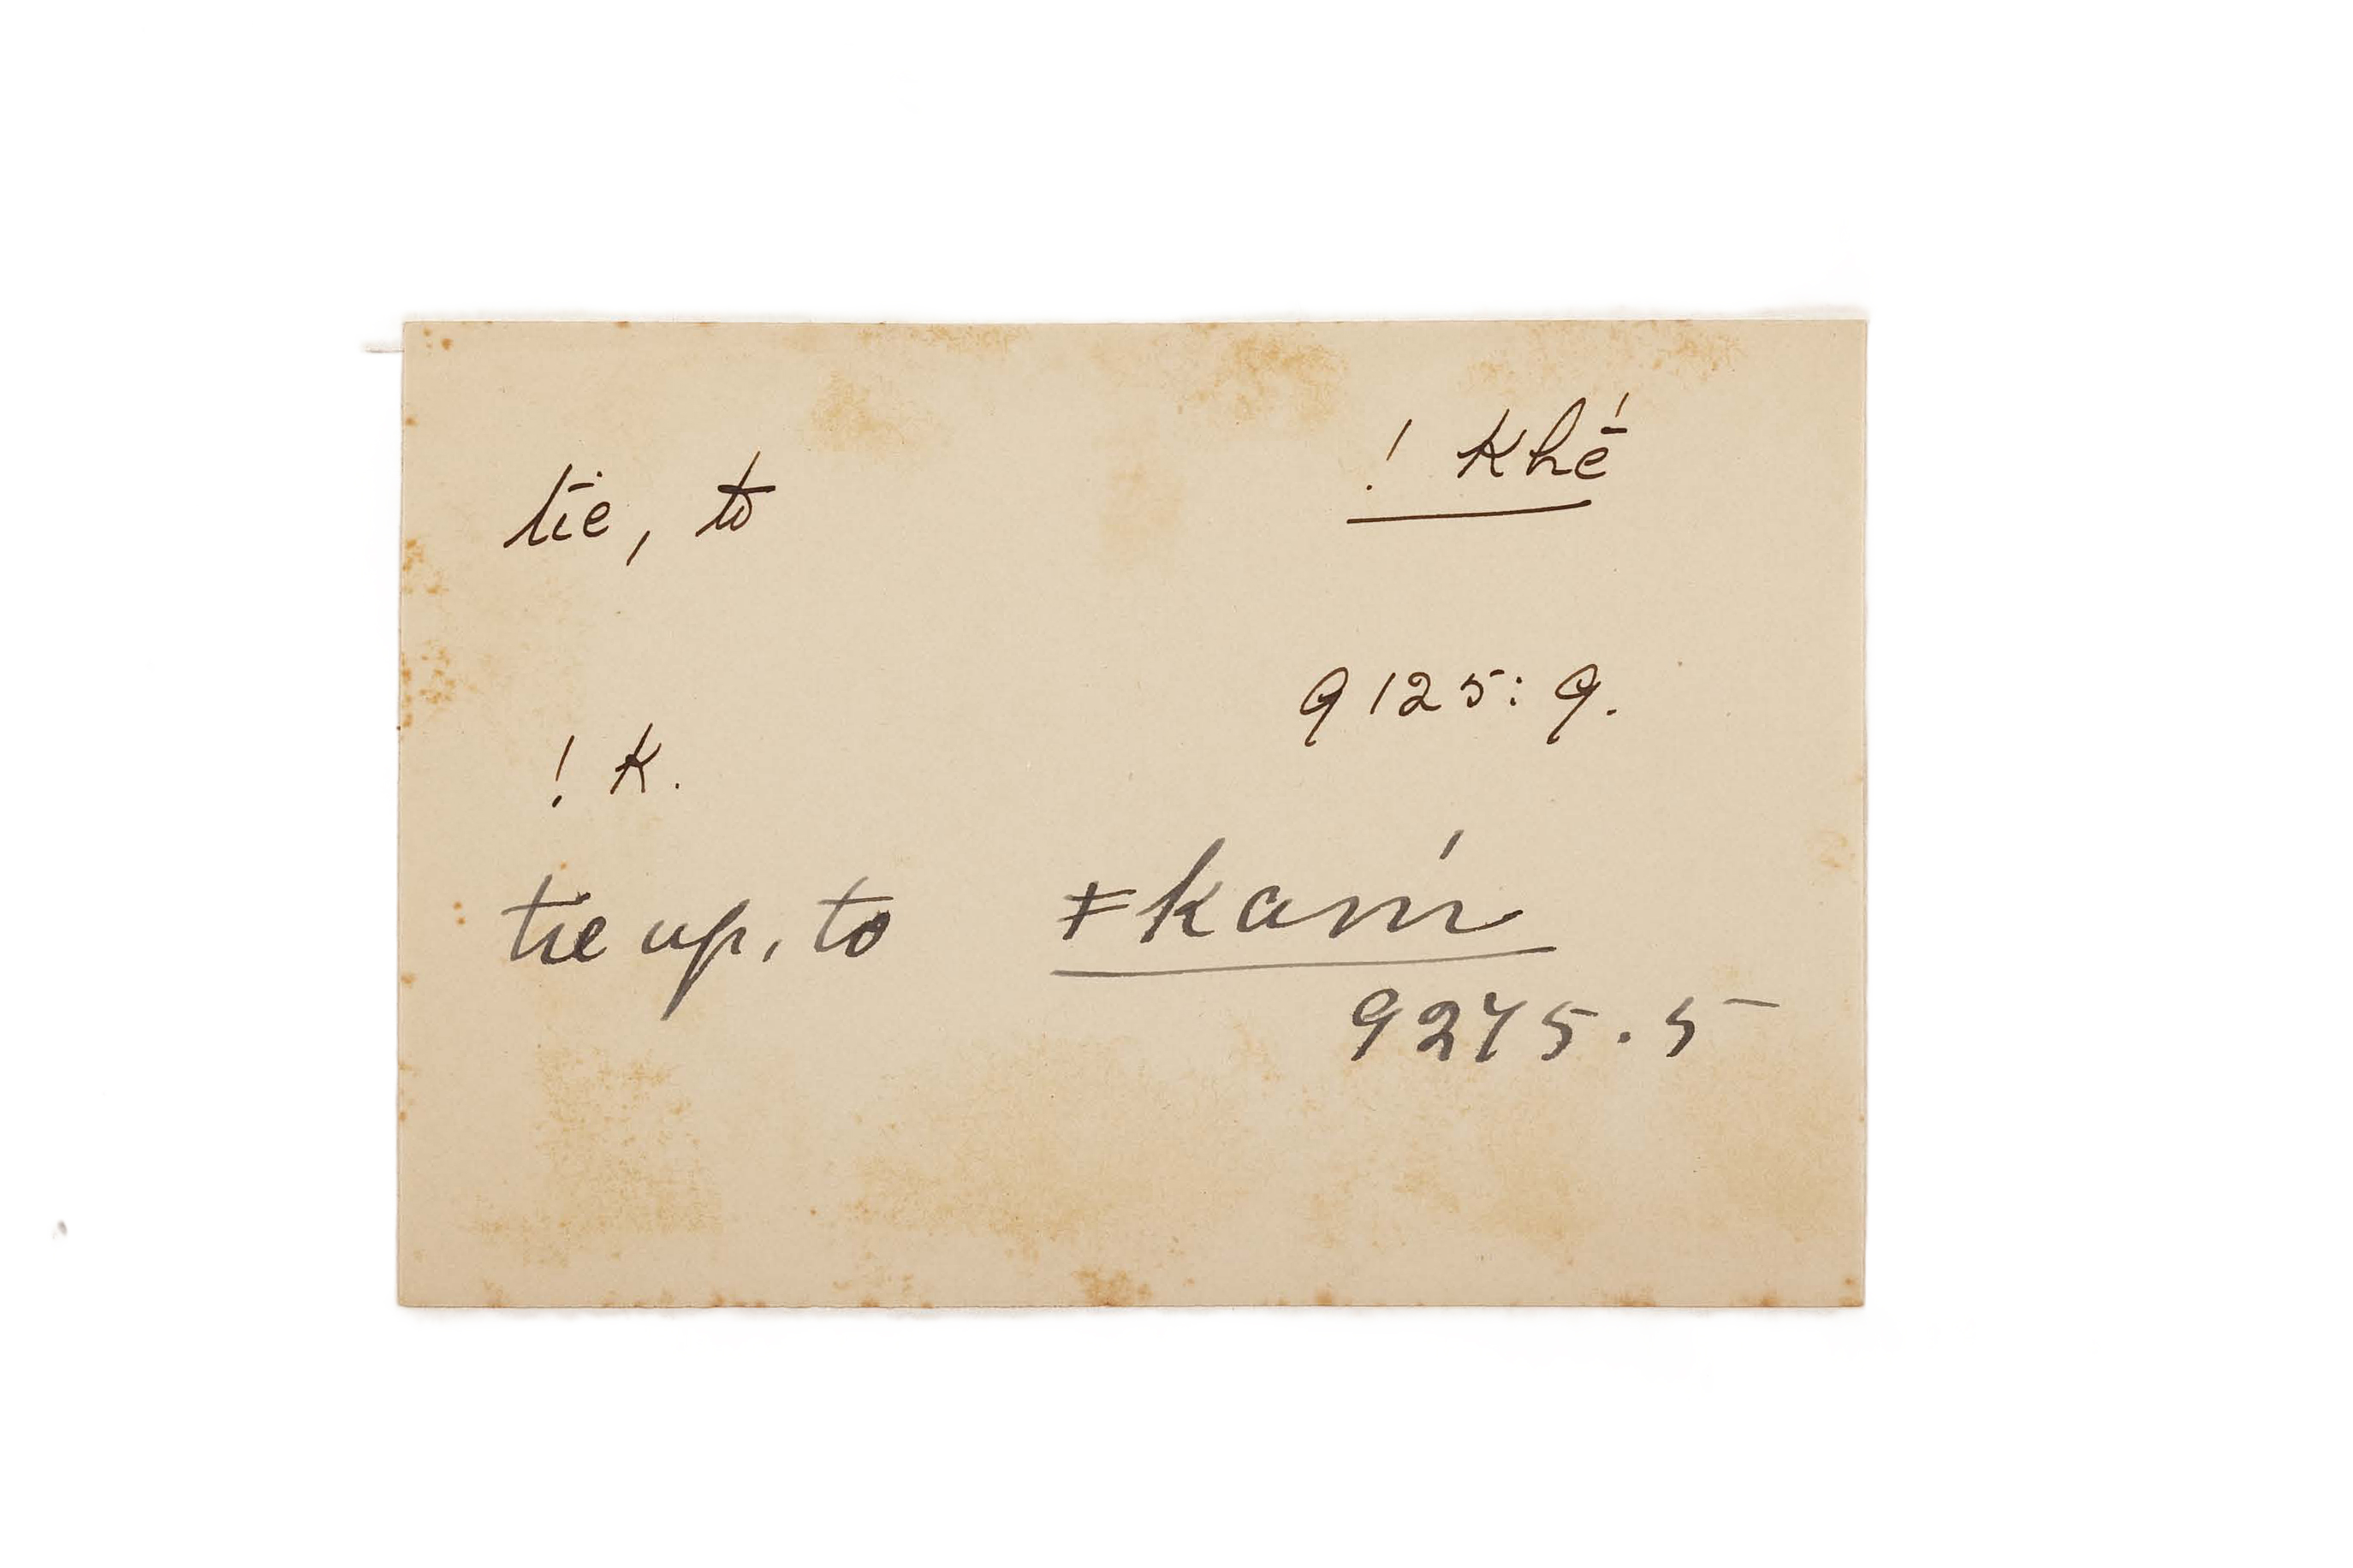 tie, to ! khḗ
9125: 9.
! k.
tie up, to ǂkaḿ
9275.5